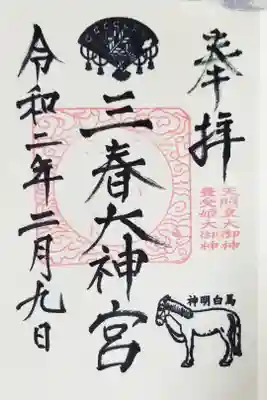 奉拝
天照皇大御神
豊受姫大御神
三春大神宮
令和二年二月九日
神明白馬